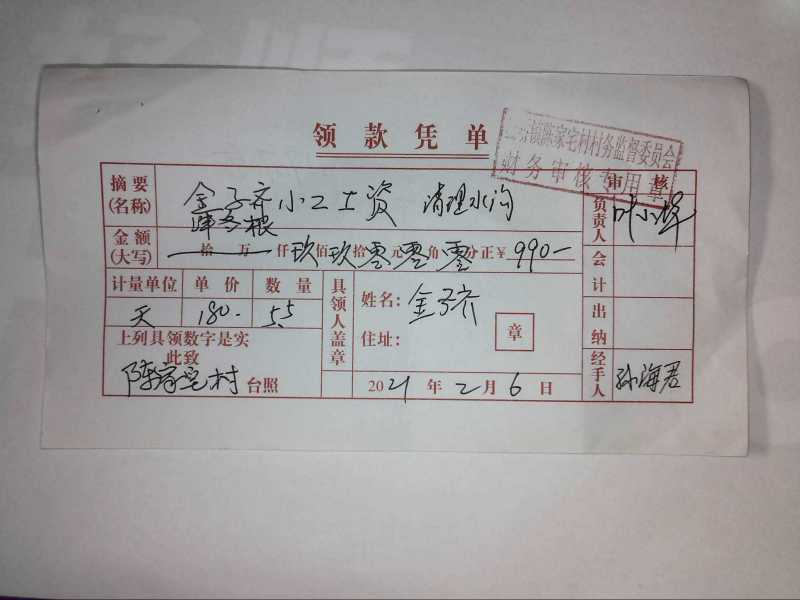 领款凭单
镇陈家宅村村务监督委员会
财务审核专用章
摘要(名称) 金子齐 小工工资 清理水沟
审核
负责人
金额(大写) 拾万仟玖佰玖拾零元零角零分正￥990-
计量单位 单价 数量
天 180- 5.5
具领人盖章
姓名: 金子齐
住址:
章
会计
出纳
上列具领数字是实
此致
陈家宅村 台照
2021年2月6日
经手人 孙海君